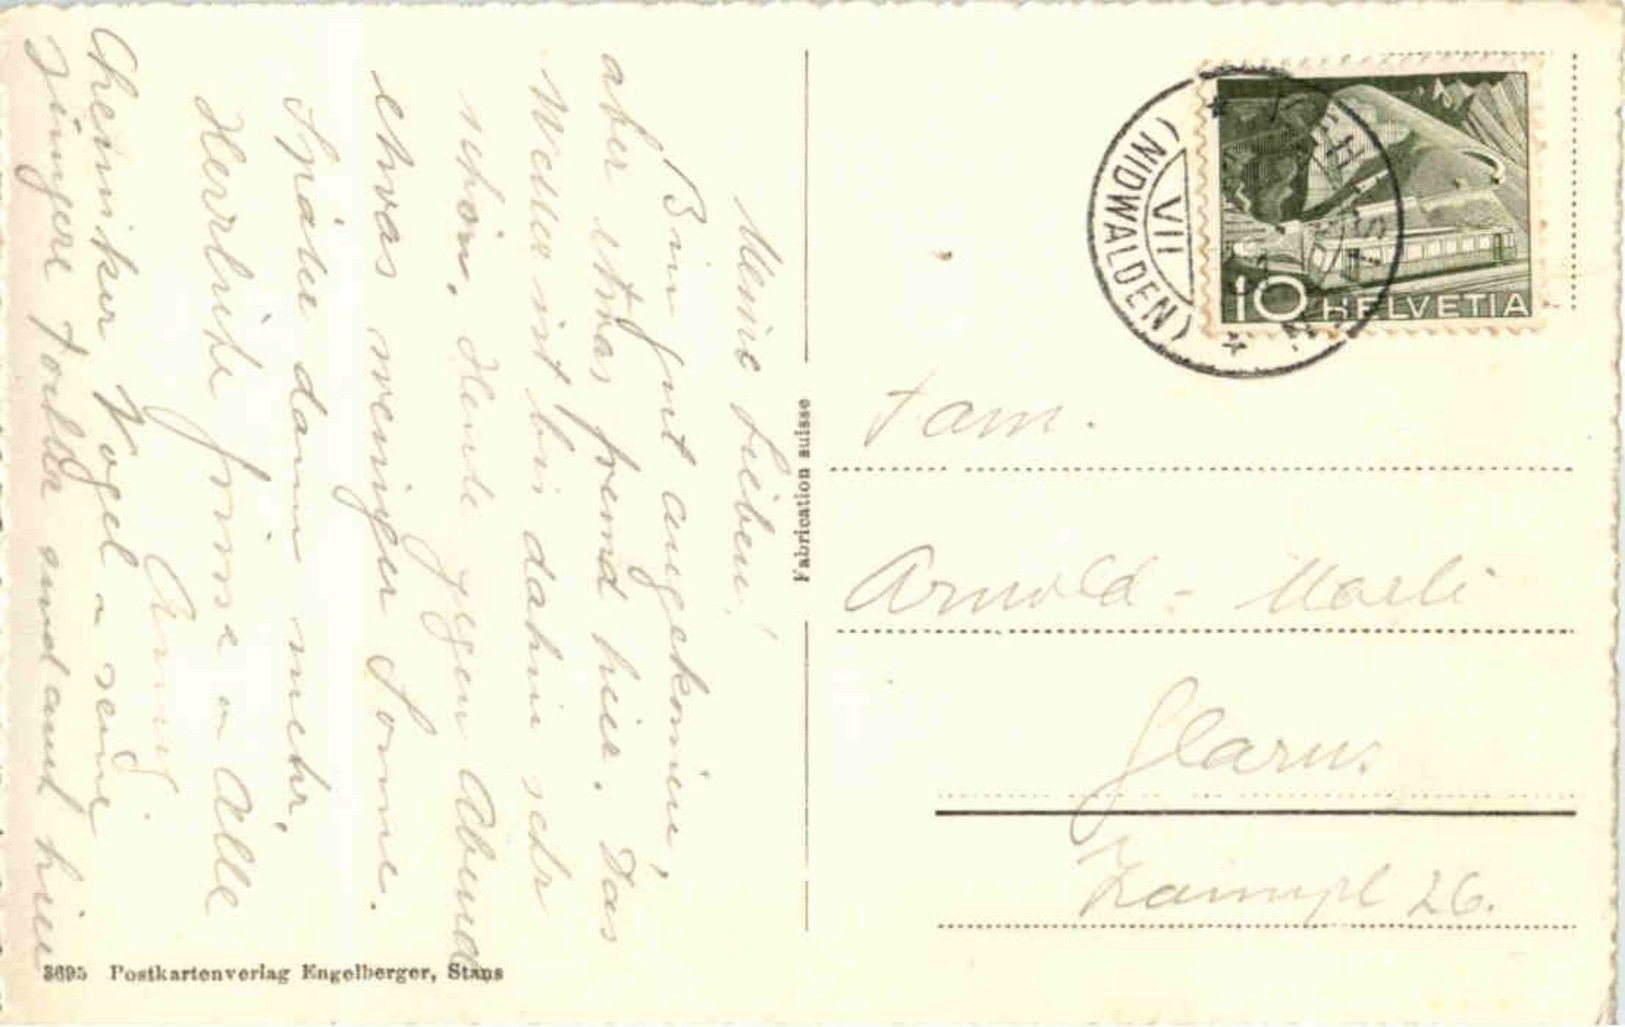 Meine Lieben!
Bin gut angekommen,
aber etwas fremd hier. Das
Wetter ist bis dahin sehr
schön. Heute gegen Abend
etwas weniger Sonne.
Später dann mehr.
Herzliche Grüsse an Alle
Anny
Chemiker Vogel u seine
jüngere Tochter sind auch hier
3695 Postkartenverlag Engelberger, Stans
Fabrication suisse
(NIDWALDEN)
VII
10 HELVETIA
Fam.
Arnold - Marti
Glarus
26.